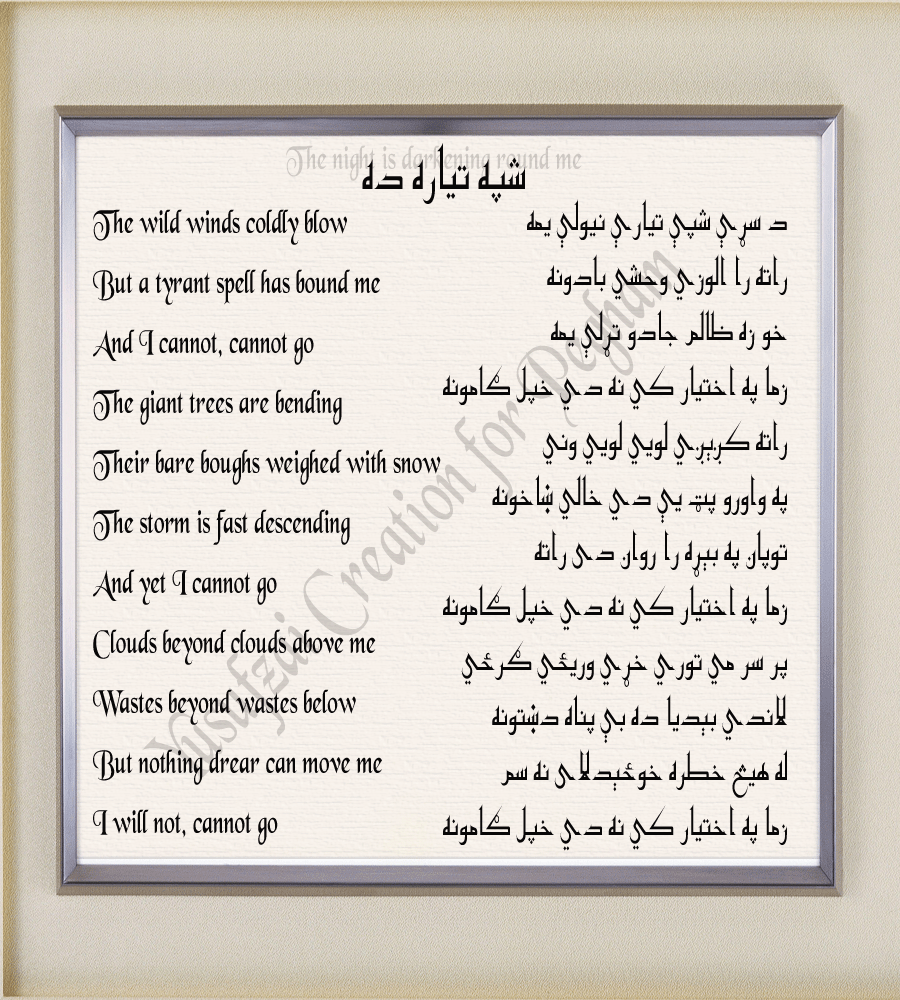 The night is darkening round me
شپه تياره ده
The wild winds coldly blow
But a tyrant spell has bound me
And I cannot, cannot go
The giant trees are bending
Their bare boughs weighed with snow
The storm is fast descending
And yet I cannot go
Clouds beyond clouds above me
Wastes beyond wastes below
But nothing drear can move me
I will not, cannot go
د سړې شپې تيارې نيولې يمه
راته را الوزي وحشي بادونه
خو زه ظالم جادو تړلې يمه
زما په اختيار کي نه دي خپل ګامونه
راته کږېږي لويي لويي وني
په واورو پټ يې دي خالي ښاخونه
توپان په بېړه را روان دی راته
زما په اختيار کي نه دي خپل ګامونه
پر سر مي توري خړي وريځي ګرځي
لاندي بېديا ده بې پناه دښتونه
له هيڅ خطره خوځېدلای نه سم
زما په اختيار کي نه دي خپل ګامونه
Yusufzai Creation for Pegham